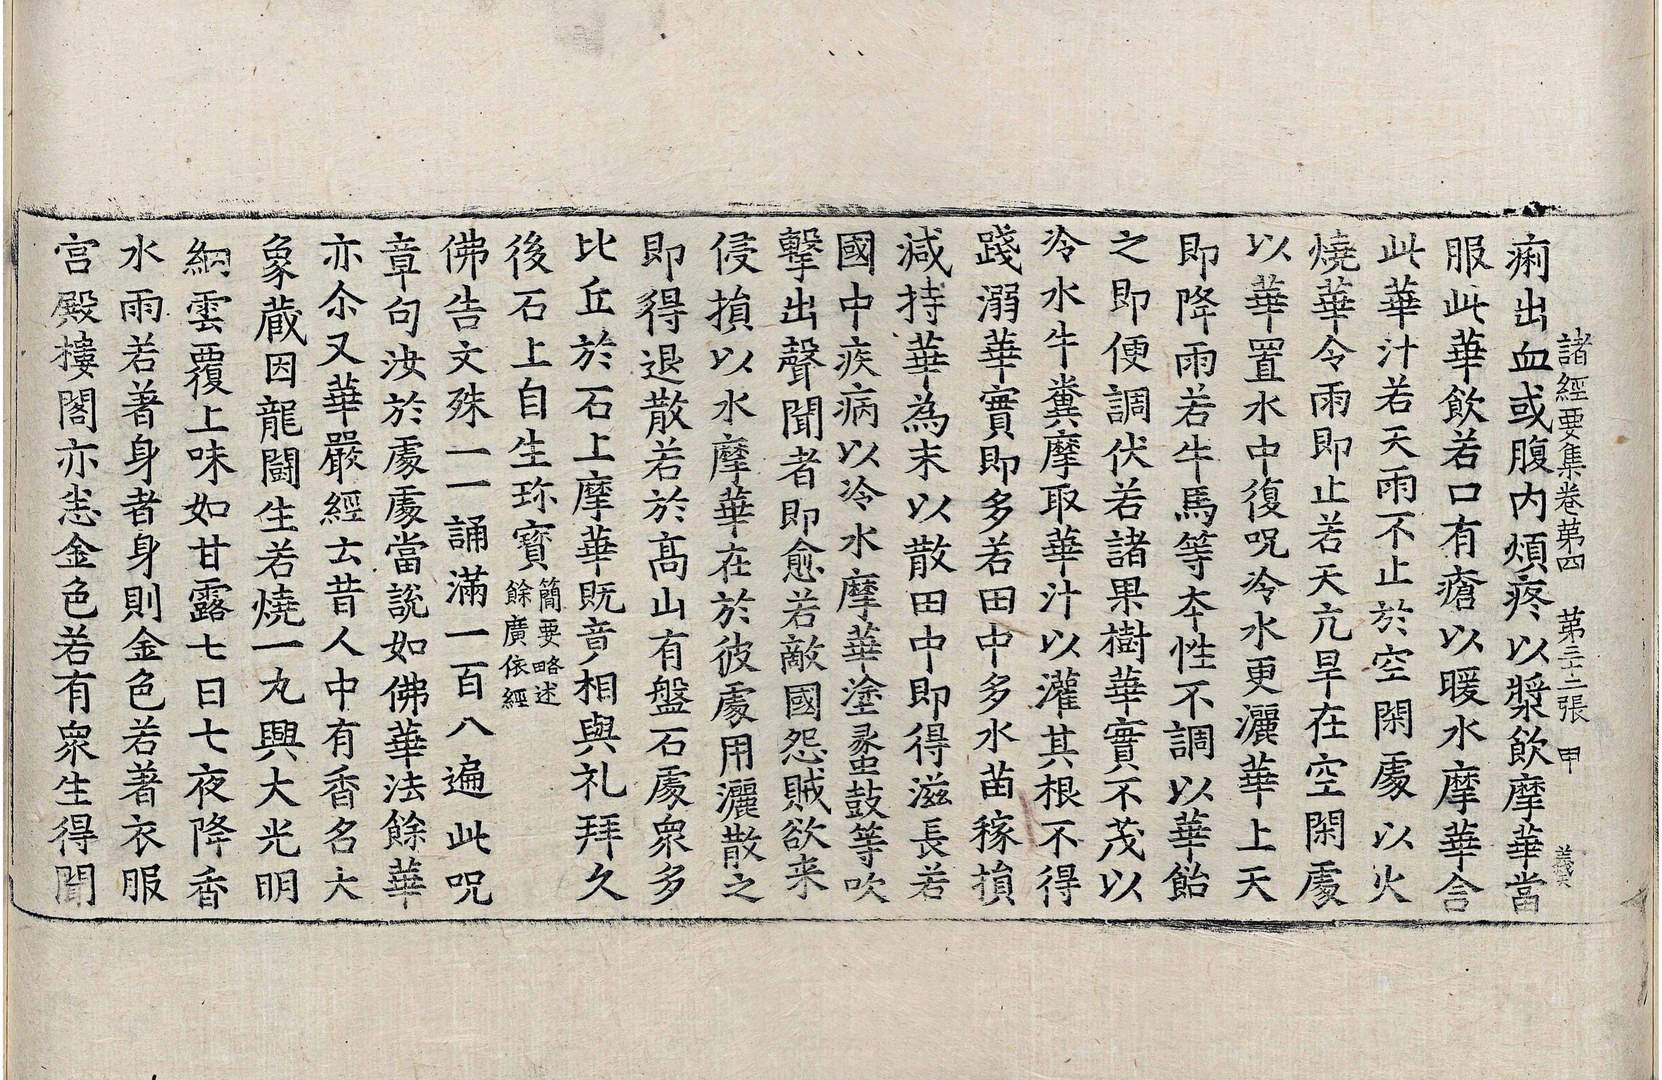 諸經要集卷第四 第三十二張 甲 義
痢出血或腹內煩疼以漿飲摩華當
服此華飲若口有瘡以暖水摩華含
此華汁若天雨不止於空閑處以火
燒華令雨即止若天亢旱在空閑處
以華置水中復呪冷水更灑華上天
即降雨若牛馬等本性不調以華飴
之即便調伏若諸果樹華實不茂以
冷水牛糞摩取華汁以灌其根不得
踐溺華實即多若田中多水苗稼損
減持華為末以散田中即得滋長若
國中疾病以冷水摩華塗蠡鼓等吹
擊出聲聞者即愈若敵國怨賊欲来
侵損以水摩華在於彼處用灑散之
即得退散若於高山有盤石處衆多
比丘於石上摩華既竟相與礼拜久
後石上自生珎寶簡要略述
餘廣依經
佛告文殊一一誦滿一百八遍此呪
章句汝於處處當說如佛華法餘華
亦尒又華嚴經云昔人中有香名大
象藏因龍鬪生若燒一丸興大光明
網雲覆上味如甘露七日七夜降香
水雨若著身者身則金色若著衣服
宮殿樓閣亦悉金色若有衆生得聞